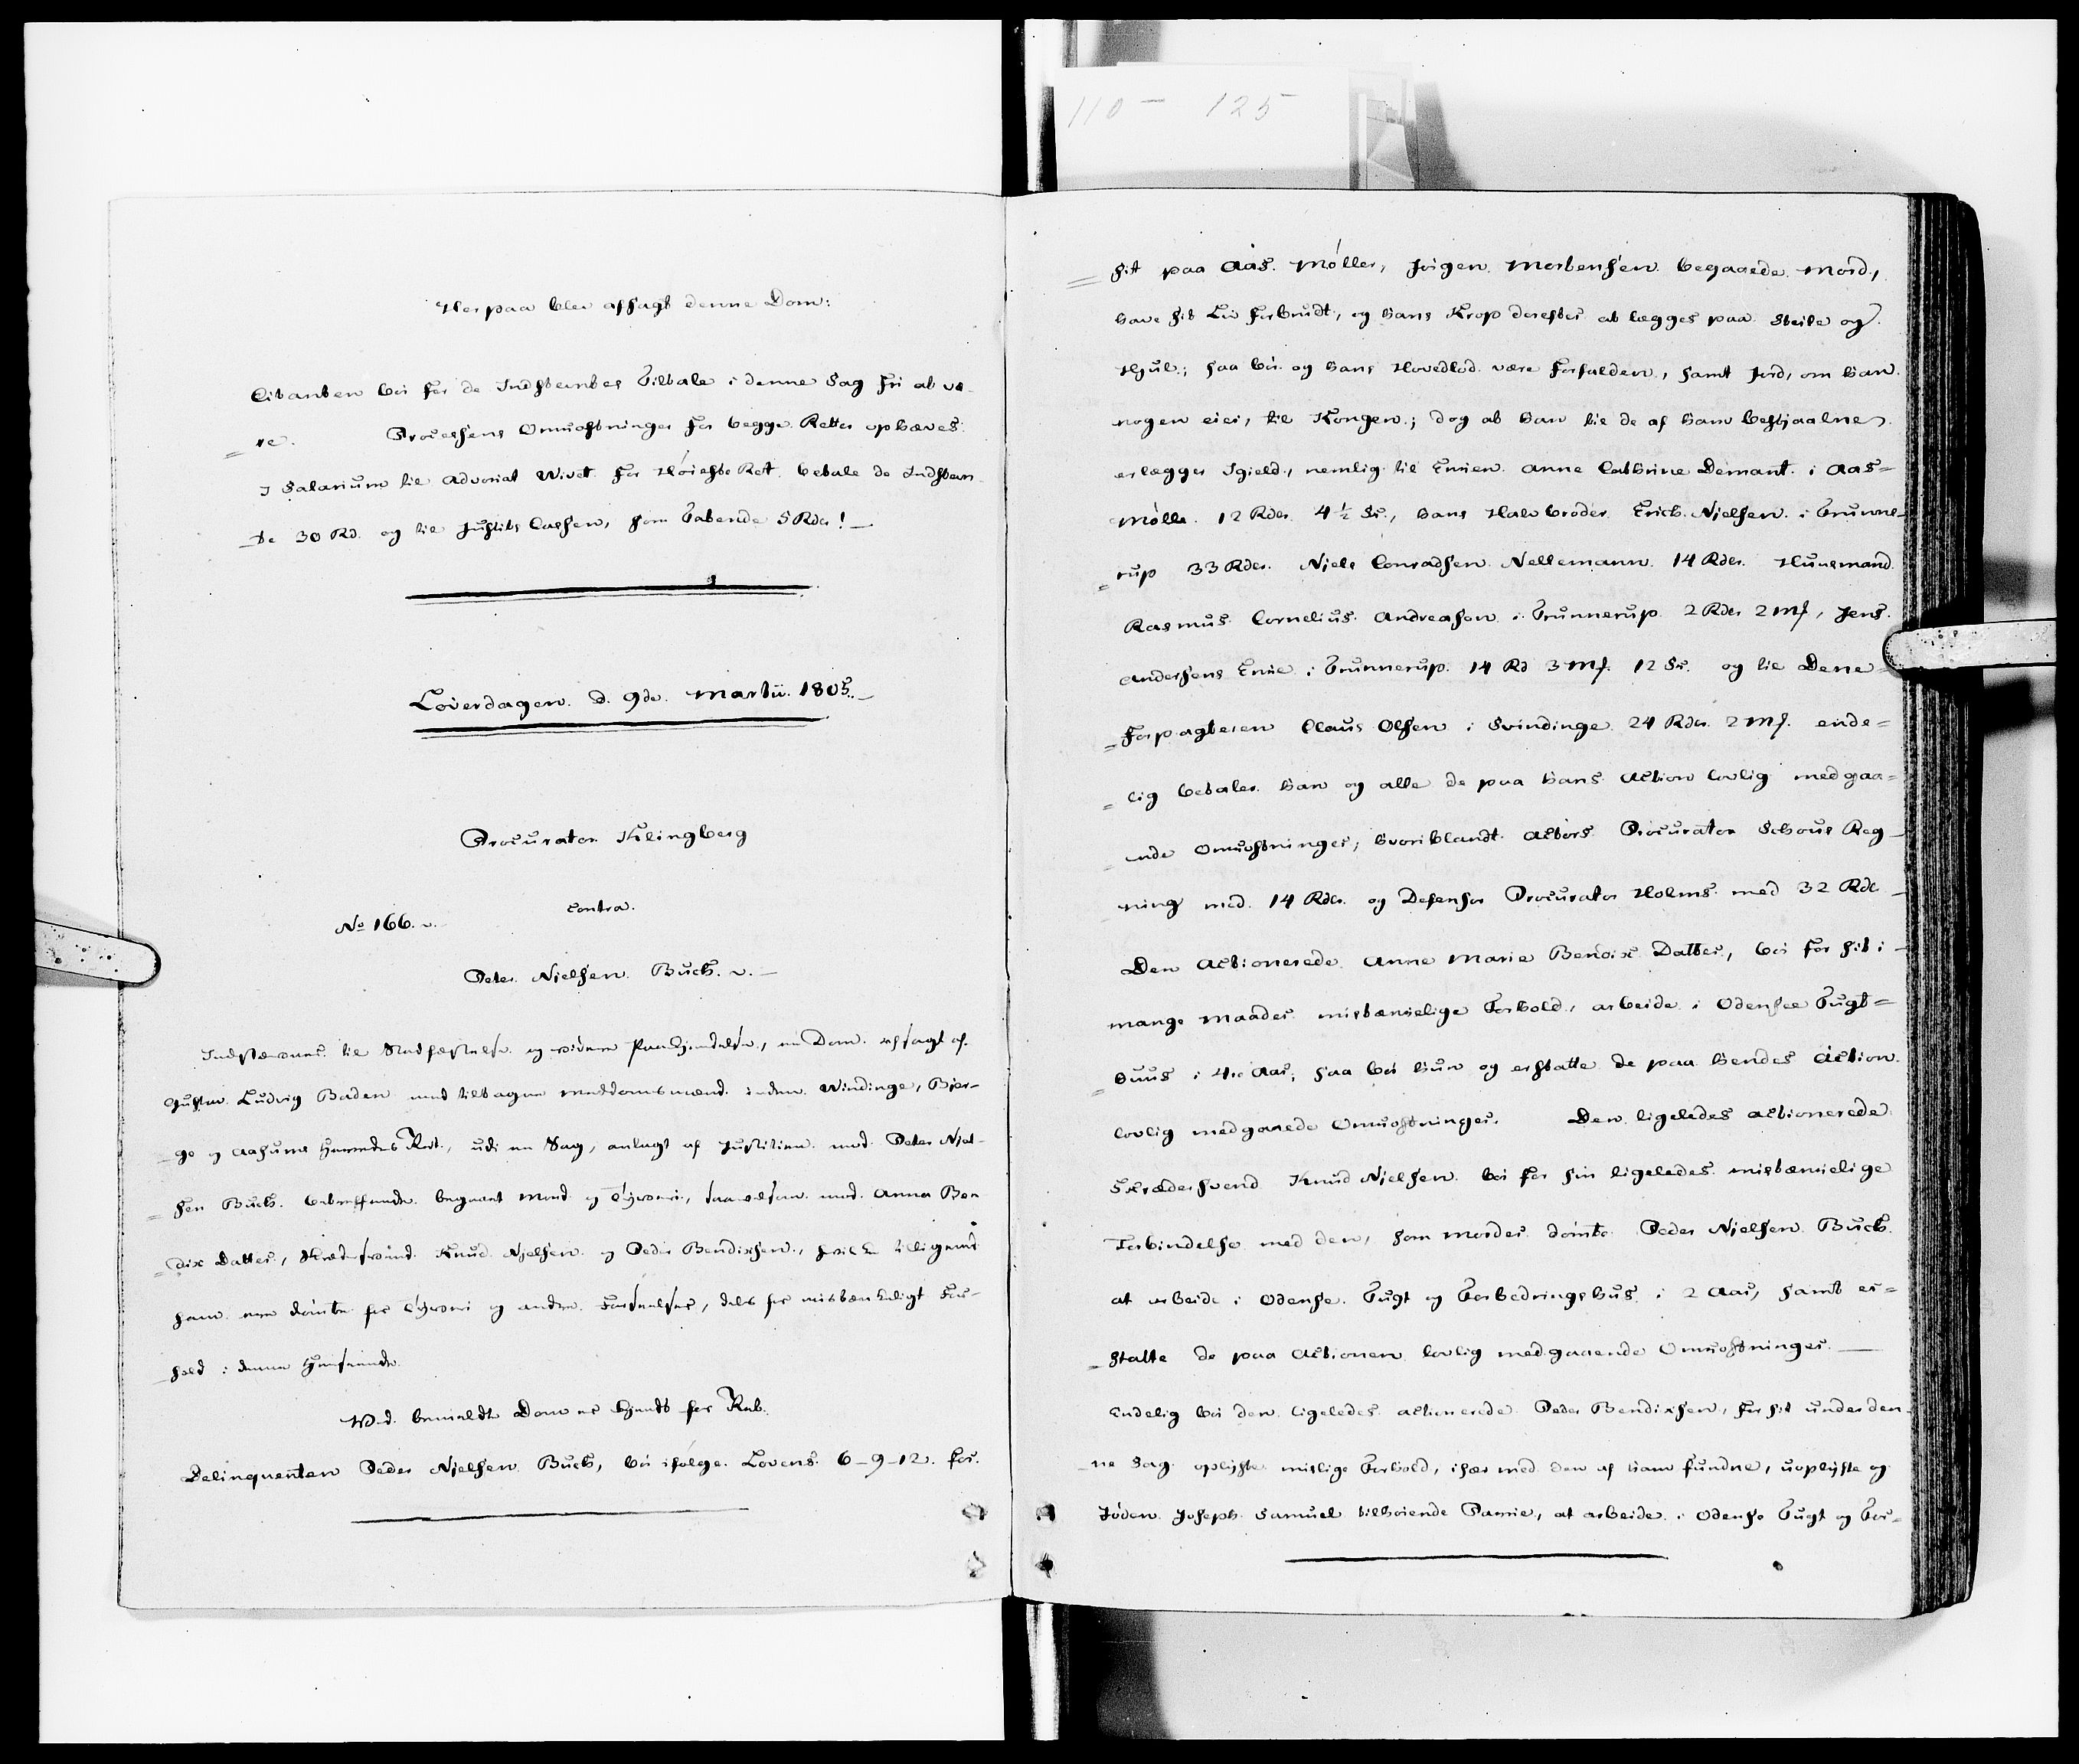 110 — 125
Herpaa blev afsagt denne Dom:
Citanten bör for de Indstevntes Tiltale i denne Sag fri at væ-
re. Processens Omkostninger for begge Retter ophæves.
I Salarium til Advocat Wivet for Höieste Ret betale de Indstevn-
te 30 Rd. og til Justits Cassen, som Tabende 5 Rdr! —
Löverdagen d. 9de Martii 1805. —
Procurator Klingberg
contra.
No 166.
Peter Nielsen Buch. —
Indstævnes til Stadfæstelse og videre Paakjendelse, en Dom afsagt af
Gustav Ludvig Baden med tiltagne Meddomsmænd inden Windinge, Bjer-
ge og Aasums Herreders Ret, udi en Sag, anlagt af Justitien mod Peter Niel-
sen Buch betreffende begaaet Mord og Tyverie, saavelsom mod Anna Ben
dix Datter, Skrædersvend Knud Njelsen og Peder Bendixsen, hvilke tilligemed
ham ere dömte for Tyverie og andre Forseelser, dels for mistænkeligt For-
hold i denne Henseende.
Ved bemeldte Dom er kjendt for Ret.
Delinquenten Peder Njelsen Buch, bör ifölge Lovens 6-9-12. for
sit paa Aas Möller, Jörgen Mortensen begaaede Mord,
have sit Liv forbrudt, og hans Krop derefter at lægges paa Steile og
Hjul; saa bör og hans Hovedlod være forfalden, samt Jord, om han
nogen eier, til Kongen; dog at han til de af ham bestjaalne
erlægger Igield, nemlig til Enken Anne Cathrine Demant i Aas-
Mölle 12 Rdr. 4½ Sk., hans Halvbroder Erich Nielsen i Trunne-
rup 33 Rdr. Niels Conradsen Nellemann 14 Rdr. Huusmand
Rasmus Cornelius Andreasen i Trunnerup 2 Rdr 2 Mk, Jens
Andersens Enke i Trunnerup 14 Rd 3 Mk 12 Sk. og til Dene-
Forpagteren Claus Olsen i Svindinge 24 Rdr. 2 Mk. ende-
lig betaler han og alle de paa hans Action lovlig medgaa-
nde Omkostninger, hvoriblandt Actors Procurator Schous Reg-
ning med 14 Rdr. og Defensor Procurator Holms med 32 Rdr —
Den Actionerede Anne Marie Bendix Datter, bör for sit i
mange Maader mistænkelige Forhold, arbeide i Odensee Tugt-
huus i 4re Aar; saa bör hun og erstatte de paa hendes Action
lovlig medgaaede Omkostninger. Den ligeledes actionerede
Skrædersvend Knud Njelsen bör for sin ligeledes mistænkelige
Forbindelse med den, som Morder dömte Peder Njelsen Buch
at arbeide i Odense Tugt og Forbedringshus i 2 Aar, samt er-
statte de paa Actionen lovlig medgaaende Omkostninger. —
Endelig bör den ligeledes actionerede Peder Bendixsen, for sit under den-
ne Sag oplyste mislige Forhold, især med den af ham fundne, uoplyste og
Jöden Joseph Samuel tilhörende Pakke, at arbeide i Odense Tugt og For-